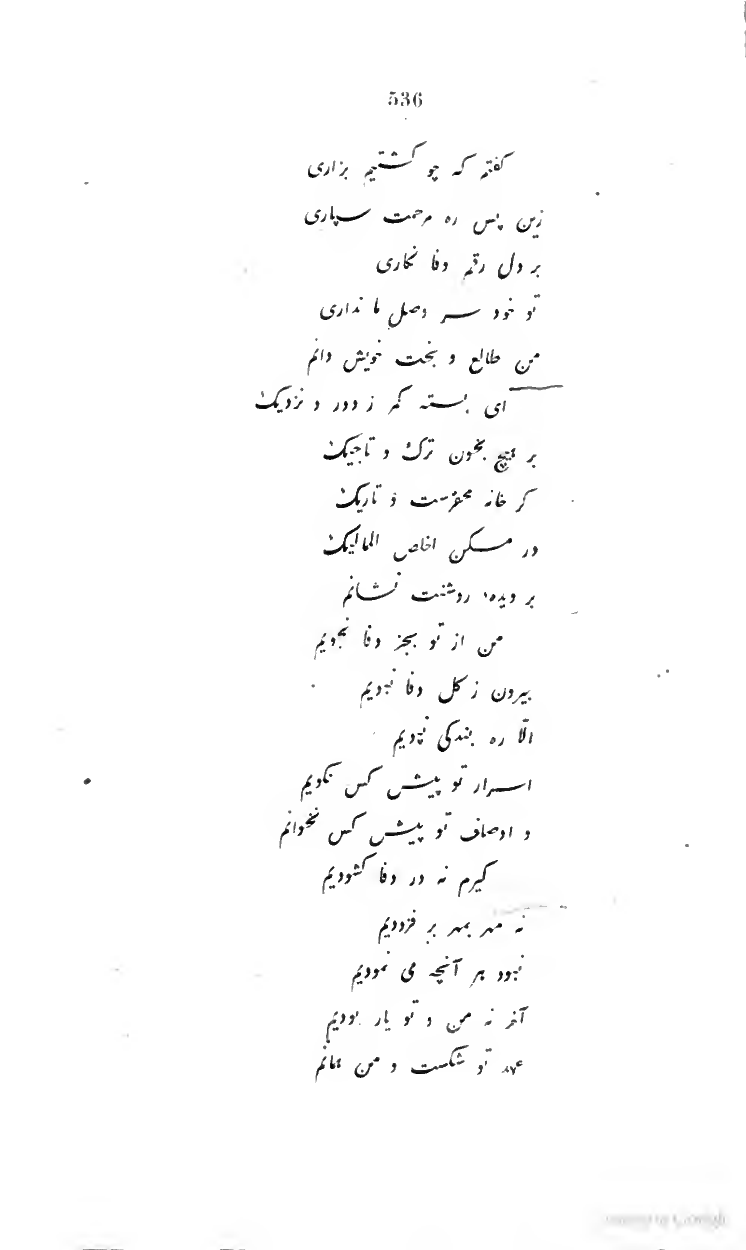 536
گفتم که چو کشتیم بزاری
زین پس ره مرحمت سپاری
بر دل رقم وفا نگاری
تو خود سر وصل ما نداری
من طالع و بخت خویش دانم
ای بسته کمر ز دور و نزدیک
بر هیچ بخون ترک و تاجیک
کر خانه محقرست و تاریک
در مسکن اخلص المالیک
بر دیدهٔ روشنت نشانم
من از تو بجز وفا نجویم
بیرون ز کل وفا نبویم
الّا ره بندکی نپویم
اسرار تو پیش کس نکویم
و اوصاف تو پیش کس نخوانم
کیرم نه در وفا کشودیم
نه مهر بمهر بر فزودیم
نبود هر آنچه می نمودیم
آخر نه من و تو یار بودیم
عهد تو شکست و من همانم